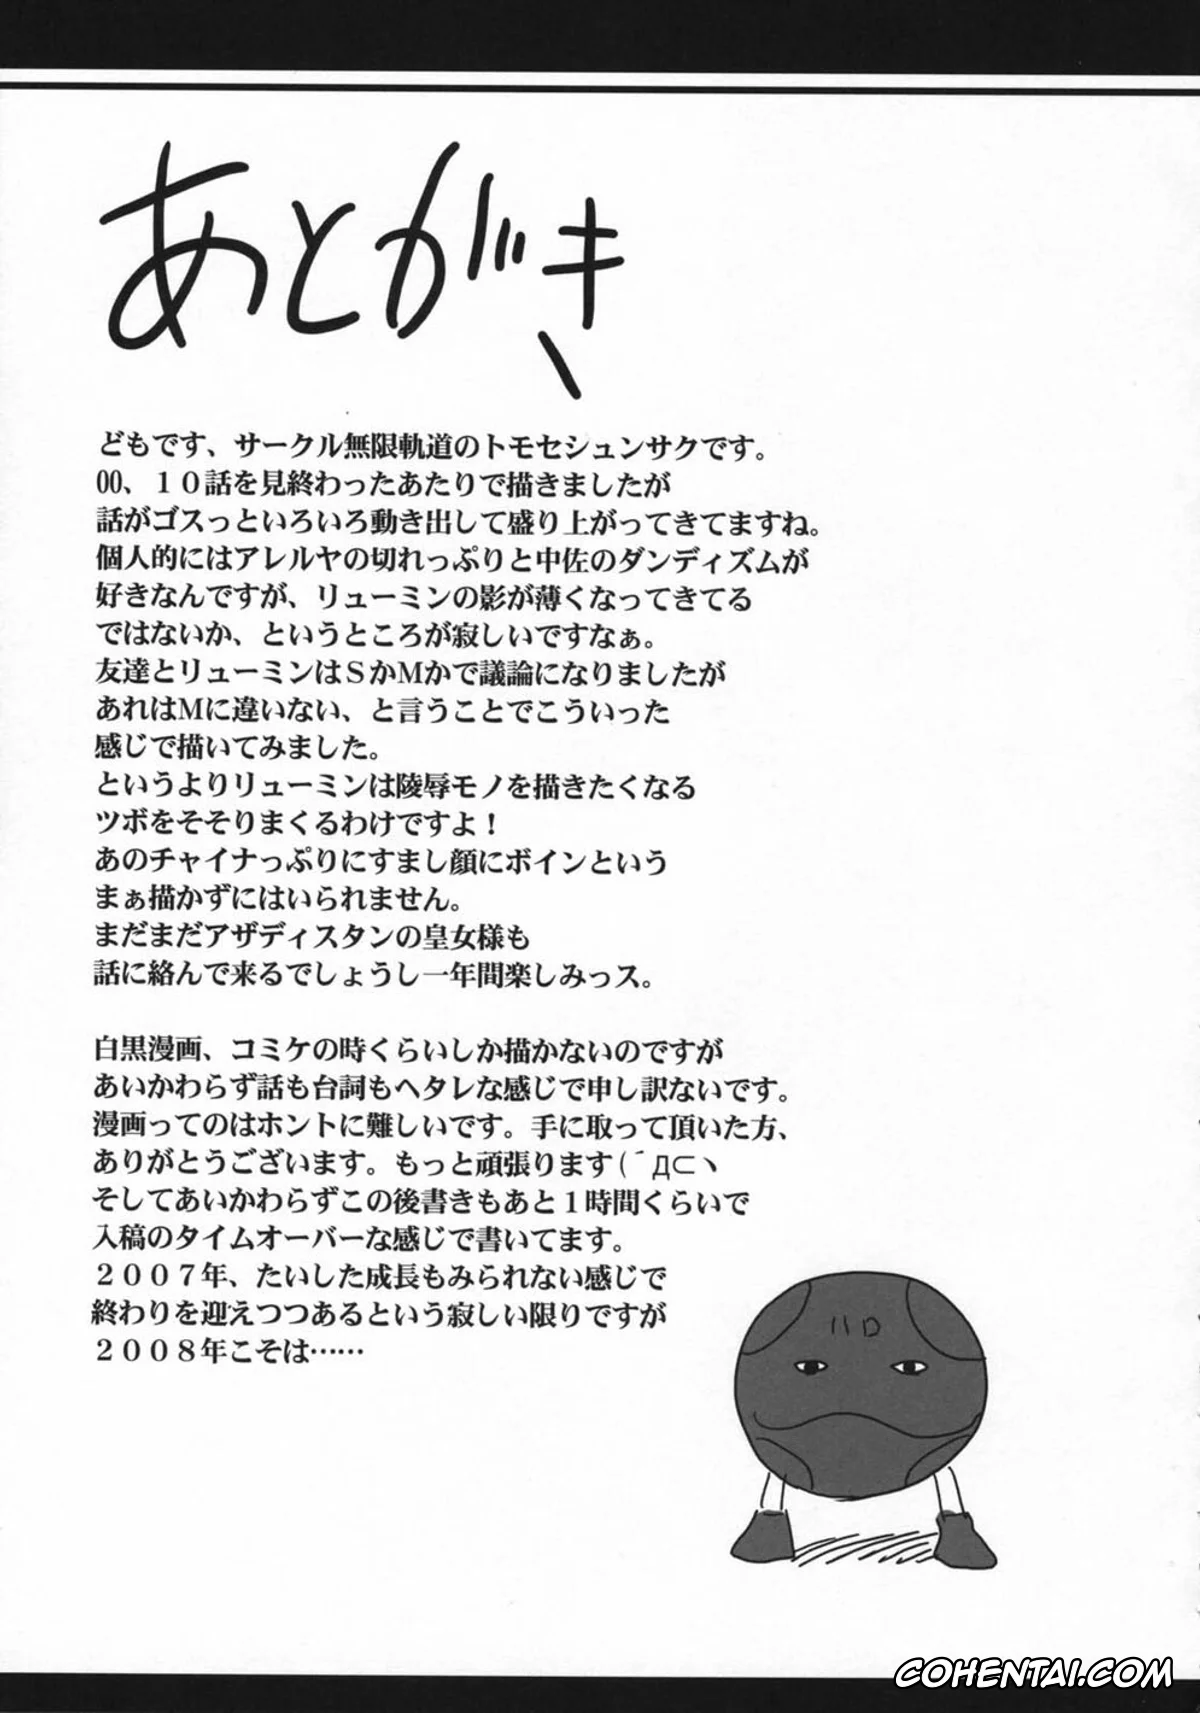 あとがき
どもです、サークル無限軌道のトモセシュンサクです。
00、１０話を見終わったあたりで描きましたが
話がゴスっといろいろ動き出して盛り上がってきてますね。
個人的にはアレルヤの切れっぷりと中佐のダンディズムが
好きなんですが、リューミンの影が薄くなってきてる
ではないか、というところが寂しいですなぁ。
友達とリューミンはＳかＭかで議論になりましたが
あれはＭに違いない、と言うことでこういった
感じで描いてみました。
というよりリューミンは陵辱モノを描きたくなる
ツボをそそりまくるわけですよ！
あのチャイナっぷりにすまし顔にボインという
まぁ描かずにはいられません。
まだまだアザディスタンの皇女様も
話に絡んで来るでしょうし一年間楽しみっス。
白黒漫画、コミケの時くらいしか描かないのですが
あいかわらず話も台詞もヘタレな感じで申し訳ないです。
漫画ってのはホントに難しいです。手に取って頂いた方、
ありがとうございます。もっと頑張ります(´Д⊂ヽ
そしてあいかわらずこの後書きもあと１時間くらいで
入稿のタイムオーバーな感じで書いてます。
２００７年、たいした成長もみられない感じで
終わりを迎えつつあるという寂しい限りですが
２００８年こそは……
ハロ
COHENTAI.COM